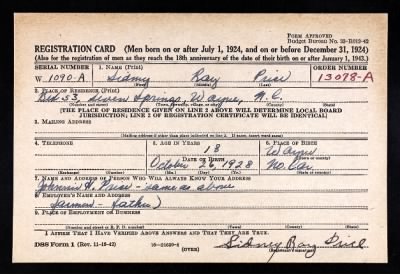 FORM APPROVED
Budget Bureau No. 33-R012-42
REGISTRATION CARD (Men born on or after July 1, 1924, and on or before December 31, 1924)
(Also for the registration of men as they reach the 18th anniversary of the date of their birth on or after January 1, 1943.)
SERIAL NUMBER 1. NAME (Print) ORDER NUMBER
W 1090-A Sidney Ray Price 13078-A
(First) (Middle) (Last)
2. PLACE OF RESIDENCE (Print)
Seven Springs, Wayne, N.C.
(THE PLACE OF RESIDENCE GIVEN ON LINE 2 ABOVE WILL DETERMINE LOCAL BOARD
JURISDICTION; LINE 2 OF REGISTRATION CERTIFICATE WILL BE IDENTICAL)
3. MAILING ADDRESS
(Mailing address if other than place indicated on line 2. If same, insert word same)
4. TELEPHONE 5. AGE IN YEARS 6. PLACE OF BIRTH
18 Wayne
DATE OF BIRTH (Town or county)
October 26, 1928 No. Car.
(Exchange) (Number) (Mo.) (Day) (Yr.) (State or country)
7. NAME AND ADDRESS OF PERSON WHO WILL ALWAYS KNOW YOUR ADDRESS
Johnnie H. Price - same as above
8. EMPLOYER'S NAME AND ADDRESS
Farmer - father)
9. PLACE OF EMPLOYMENT OR BUSINESS
(Number and street or R. F. D. number) (Town) (County) (State)
I AFFIRM THAT I HAVE VERIFIED ABOVE ANSWERS AND THAT THEY ARE TRUE.
DSS Form 1 (Rev. 11-16-42) (OVER) Sidney Ray Price